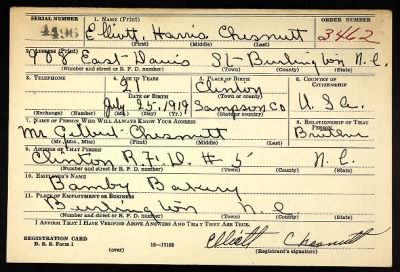 SERIAL NUMBER 1. NAME (Print) ORDER NUMBER
4496 Elliott, Harris Chesnutt 3462
(First) (Middle) (Last)
2. ADDRESS (Print)
908 East Davis St- Burlington N.C.
(Number and street or R. F. D. number) (Town) (County) (State)
3. TELEPHONE 4. AGE IN YEARS 5. PLACE OF BIRTH 6. COUNTRY OF CITIZENSHIP
21 Clinton
DATE OF BIRTH (Town or county)
July 25, 1919 Sampson Co U. S. a.
(Exchange) (Number) (Mo.) (Day) (Yr.) (State or country)
7. NAME OF PERSON WHO WILL ALWAYS KNOW YOUR ADDRESS 8. RELATIONSHIP OF THAT PERSON
Mr Gilbert Chesnutt Brother
(Mr., Mrs., Miss) (First) (Middle) (Last)
9. ADDRESS OF THAT PERSON
Clinton R.F.D. # 5 N. C.
(Number and street or R. F. D. number) (Town) (County) (State)
10. EMPLOYER'S NAME
Bamby Bakery
11. PLACE OF EMPLOYMENT OR BUSINESS
Burlington N C
(Number and street or R. F. D. number) (Town) (County) (State)
I AFFIRM THAT I HAVE VERIFIED ABOVE ANSWERS AND THAT THEY ARE TRUE.
REGISTRATION CARD
D. S. S. Form 1 (over) 16—17105 Elliott Chesnutt
(Registrant's signature)